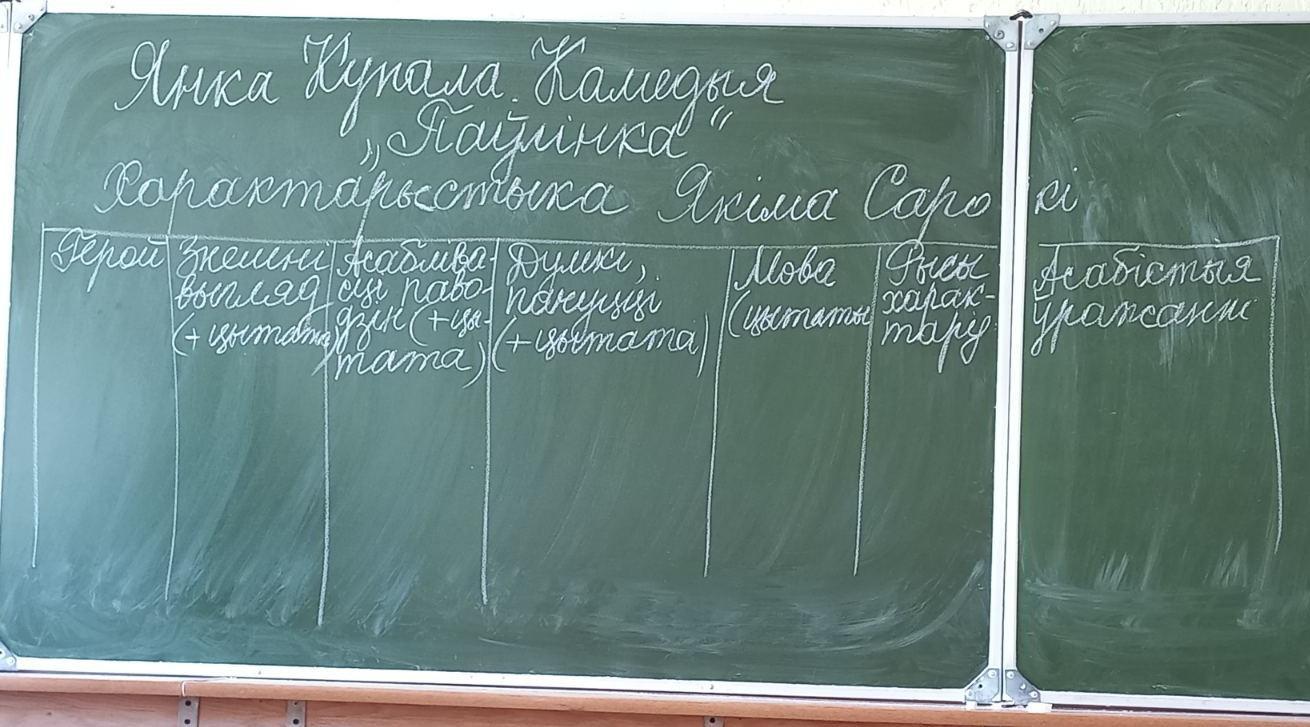 Янка Купала. Камедыя
„Паўлінка“
Характарыстыка Якіма Сарокі
Герой
Знешні
выгляд
(+цытата)
Асабліва-
сці паво-
дзін (+цы-
тата)
Думкі,
пачуцці
(+цытата)
Мова
(цытаты
Рысы
харак-
тару
Асабістыя
ўражанні